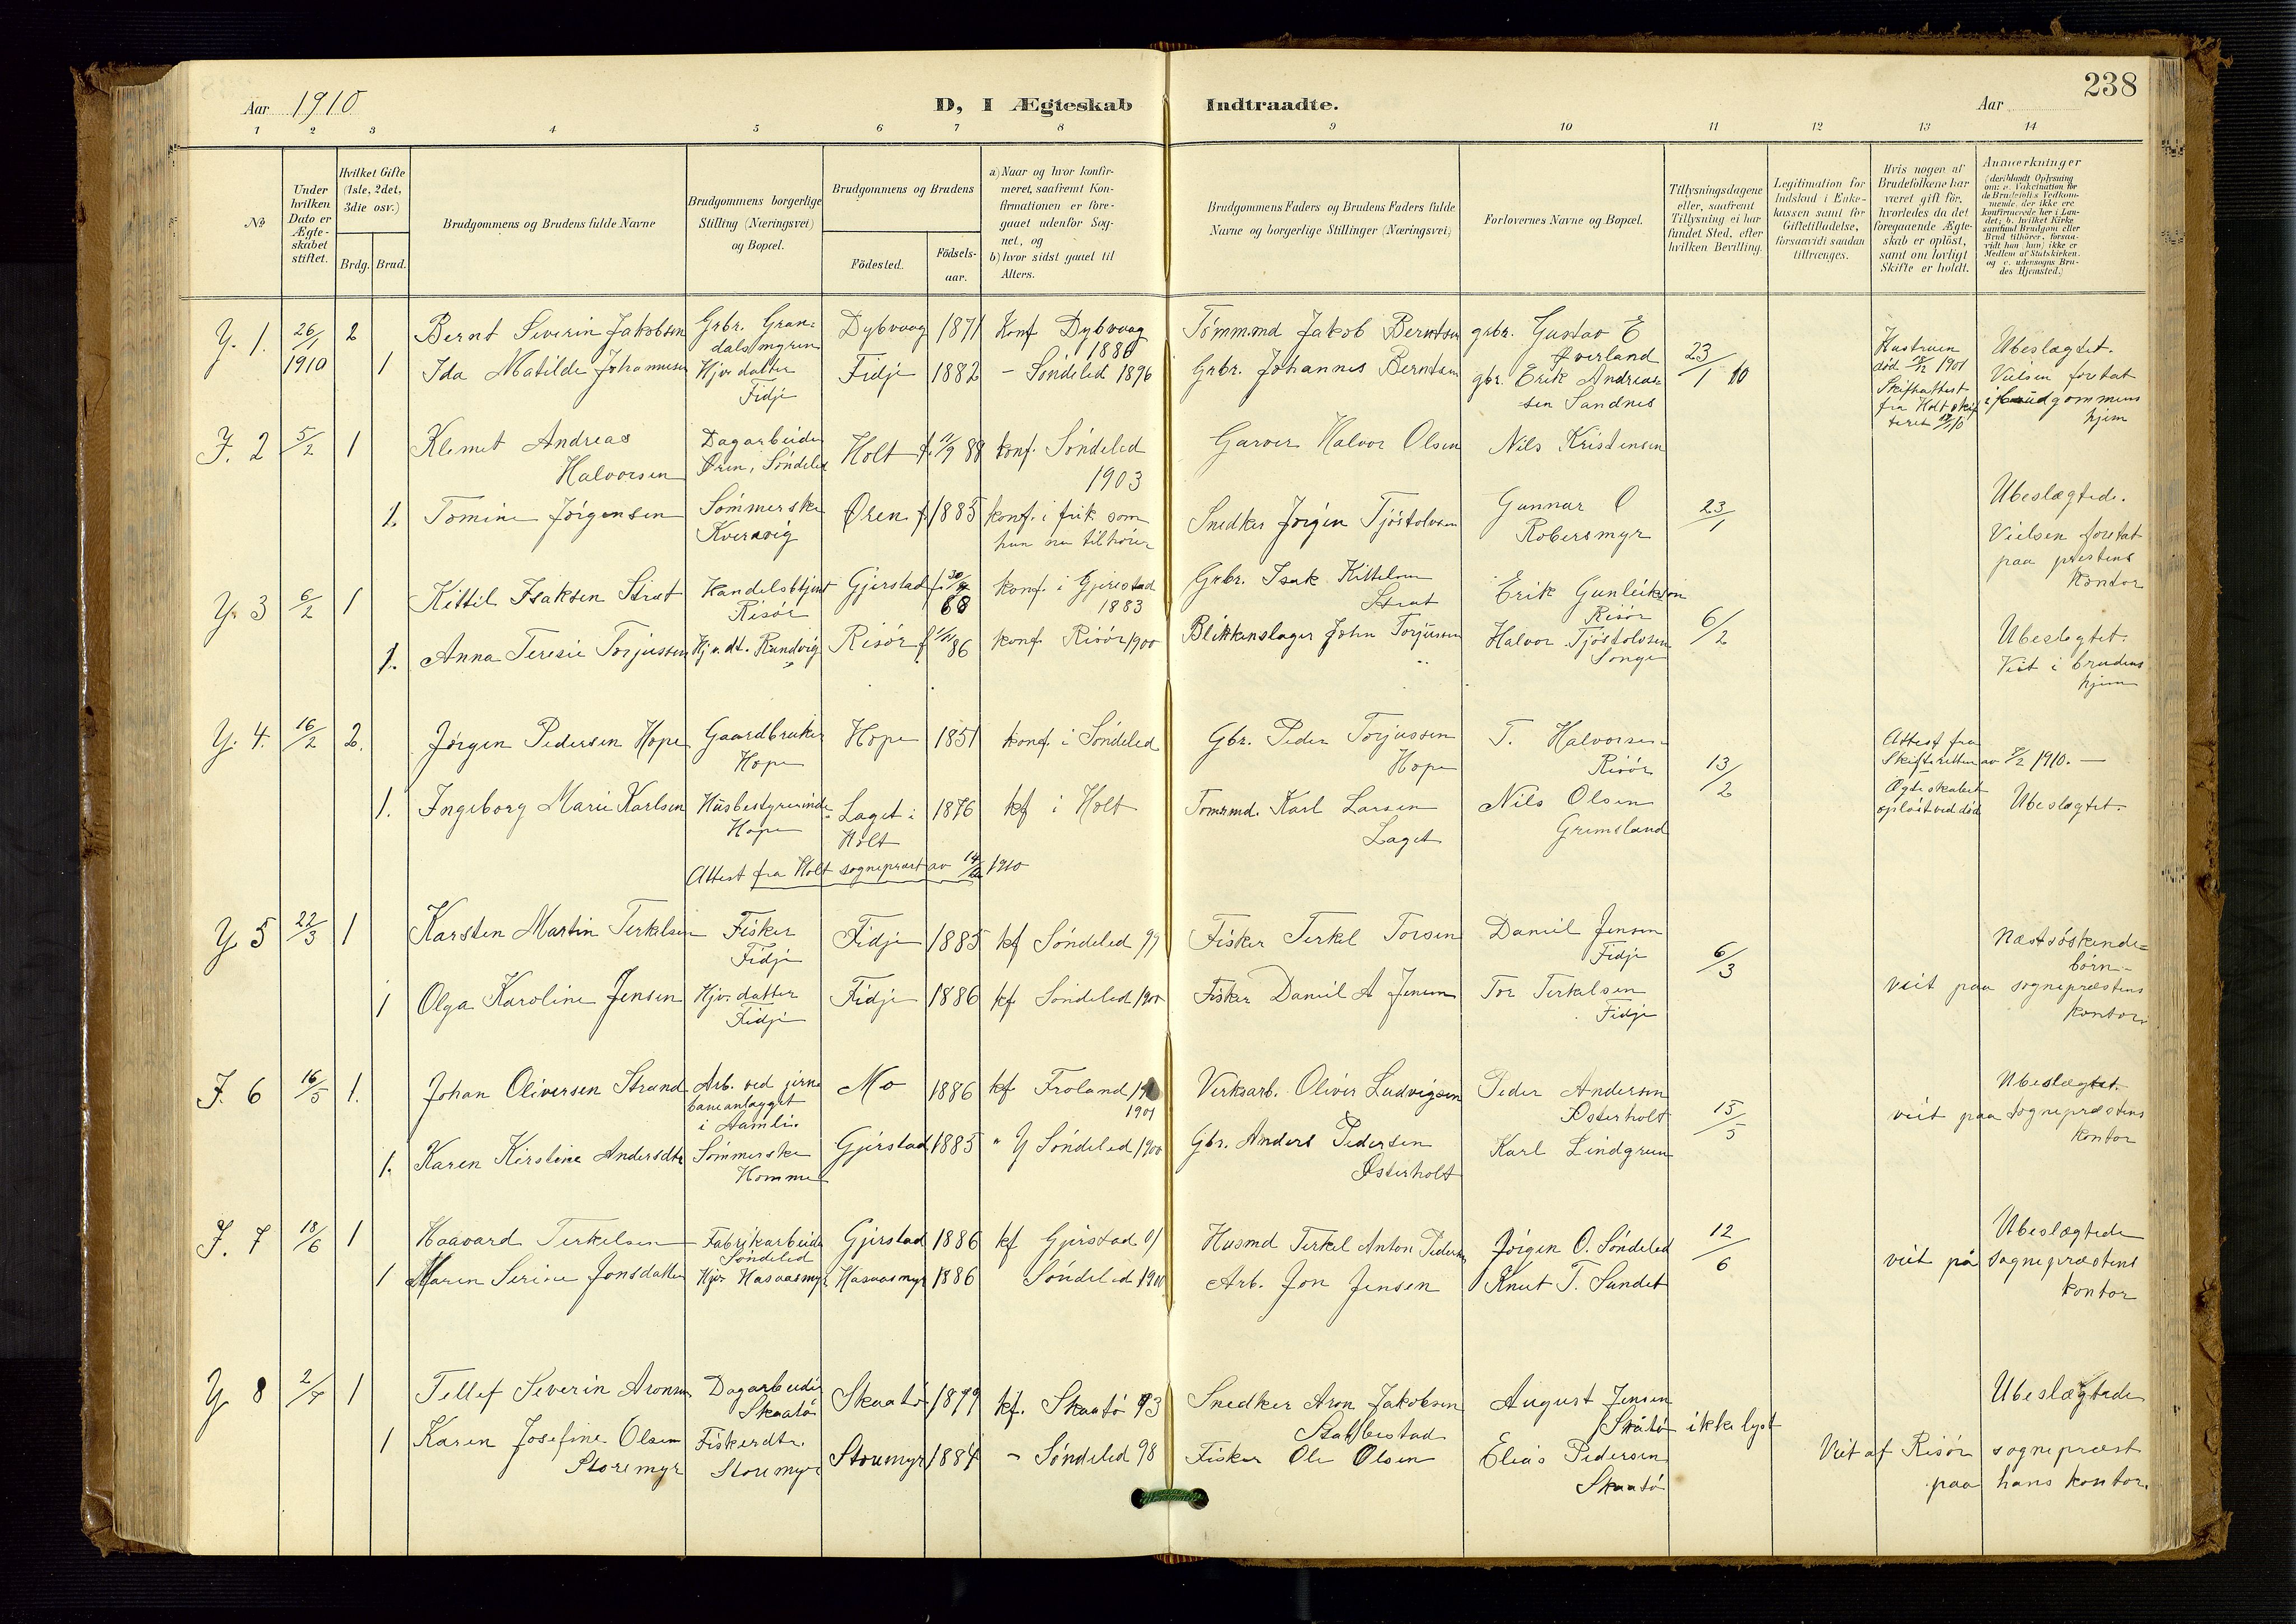 238
Aar 1910
D, I Ægteskab Indtraadte.
Aar
1 2 3 4 5 6 7 8 9 10 11 12 13 14
No
Under hvilken Dato er Ægte-skabet stiftet.
Hvilket Gifte (1ste, 2det, 3die osv.)
Brdg. Brud.
Brudgommens og Brudens fulde Navne
Brudgommens borgerlige Stilling (Næringsvei) og Bopæl.
Brudgommens og Brudens
Födested.
Födsels-aar.
a) Naar og hvor konfir-meret, saafremt Kon-firmationen er fore-gaaet udenfor Sog-net, og
b) hvor sidst gaaet til Alters.
Brudgommens Faders og Brudens Faders fulde Navne og borgerlige Stillinger (Næringsvei)
Forlovernes Navne og Bopæl.
Tillysningsdagene eller, saafremt Tillysning ei har fundet Sted, efter hvilken Bevilling.
Legitimation for Indskud i Enke-kassen samt for Giftetilladelse, forsaavidt saadan tiltrænges.
Hvis nogen af Brudefolkene har været gift för, hvorledes da det foregaaende Ægte-skab er oplöst, samt om lovligt Skifte er holdt.
Anmerkninger (deriblandt Oplysning om: a. Vakcination for de Brudefolks Vedkom-mende, der ikke ere konfirmerede her i Lan-det; b. hvilket Kirke samfund Brudgom eller Brud tilhörer, forsaa-vidt han (hun) ikke er Medlem af Statskirken, og c. udensogns Bru-des Hjemsted.)
Y. 1. 26/1 1910 2 Bernt Severin Jakobsen Grbr. Gran-dalsmyren Dybvaag 1871 Konf Dybvaag 1886 Tömm.md Jakob Berntsen grbr. Gustav E Øverland 23/1 10 Hustruen död 1901 Skifteattest fra Holt
1 Ida Matilde Johannesen Hjv. datter Fidje Fidje 1882 - Söndeled 1896 Grbr. Johannes Berntsen gbr. Erik Andreas-sen Sandnes Ubeslægtet. Vielsen foretat i brudgommens hjem
J. 2 5/2 1 Klemet Andreas Halvorsen Dagarbeider Øren, Söndeled Holt f. 11/9 88 konf. Söndeled 1903 Garver Halvor Olsen Nils Kristensen
1. Tomine Jörgensen Sömmerske Kveravig Øren f. 1885 konf. i frik som hun nu tilhörer Snedker Jörgen Tjöstolvsen Gunnar O Robersmyr 23/1 Ubeslægtede. Vielsen foretat paa prestens kontor
Y. 3 6/2 1 Kittil Isaksen Strat Handelsbtjent Risör Gjerstad f. 68 konf. i Gjerestad 1883 Grbr. Isak Kittelsen Strat Erik Gunleiksen Risör 6/2
1. Anna Teresie Torjussen Hjv. dt. Randvig Risör f 86 konf. Risör 1900 Blikkenslager John Torjussen Halvor Tjöstolvsen Songe Ubeslegtet. Viet i brudens hjem
Y. 4. 16/2 2. Jörgen Pedersen Hope Gaardbruker Hope Hope 1851 konf. i Söndeled Gbr. Peder Torjussen Hope T. Halvorsen Risör 13/2 Attest fra Skifteretten av 8/2 1910. —
1. Ingeborg Marie Karlsen Husbestyrerinde Hope Laget i Holt 1876 kf i Holt Tømrmd. Karl Larsen Laget Nils Olsen Grimsland Ægteskabet oplöst ved död Ubeslægtet.
Attest fra Holt sogneprest av 14/2 1910
Y 5 22/3 1 Karsten Martin Terkelsen Fisker Fidje Fidje 1885 kf Söndeled 99 Fisker Terkel Torsen Daniel Jensen Fidje 6/3 Næstsöskende-börn-
1 Olga Karoline Jensen Hjv. datter Fidje Fidje 1886 kf Söndeled 1900 Fisker Daniel A Jensen Tor Terkelsen Fidje viet paa sogneprestens kontor
J. 6 16/5 1. Johan Oliversen Strand Arb. ved jern-baneanlægget i Aamli. Mo 1886 kf Froland 1901 Verksarb. Oliver Ludvigsen Peder Andersen Østerholt 15/5 Ubeslægtet. viet paa sogneprestens kontor
1. Karen Kirstine Andersdtr Sömmerske Homme Gjerstad 1885 " Y Söndeled 1900 Gbr. Anders Pedersen Østerholt Karl Lindgreen
J. 7 18/6 1 Haavard Terkelsen Fabrikarbeider Söndeled Gjerstad 1886 kf Gjerstad 01 Husmd Terkel Anton Pedersen Jörgen O. Söndeled 12/6 Ubeslægtede viet på sogneprestens kontor
1 Maren Serine Jonsdatter Hjv. Hasaasmyr Hasaasmyr 1886 Söndeled 1900 Arb. Jon Jensen Knut T. Sundet
Y 8 2/7 1 Tellef Severin Aronsen Dagarbeider Skaatö Skaatö 1879 kf. Skaatö 93 Snedker Aron Jakobsen Stabbestad August Jensen Skåtö ikke lyst Ubeslægtede
1 Karen Josefine Olsen Storemyr Fiskerdtr. Storemyr Storemyr 1884 - Söndeled 98 Fisker Ole Olsen Elias Pedersen Skaatö Viet af Risör sogneprest paa hans kontor.